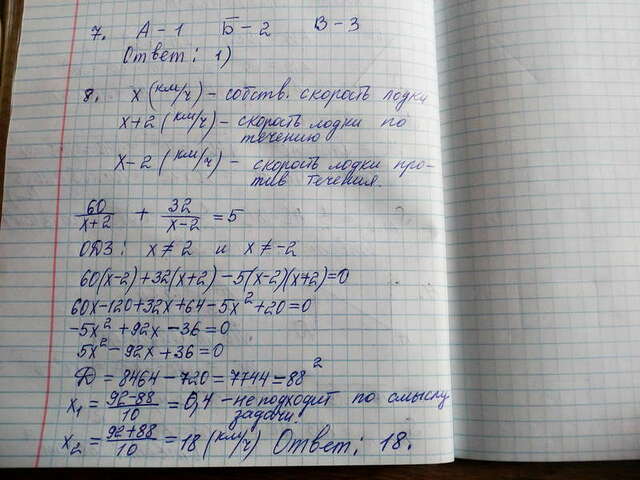 7. А – 1 Б – 2 В – 3
Ответ: 1)
8. x (км/ч) – собств. скорость лодки
x+2 (км/ч) – скорость лодки по
течению
x–2 (км/ч) – скорость лодки про-
тив течения.
60/(x+2) + 32/(x–2) = 5
ОДЗ: x ≠ 2 и x ≠ –2
60(x–2)+32(x+2)–5(x–2)(x+2)=0
60x–120+32x+64–5x²+20=0
–5x²+92x–36=0
5x²–92x+36=0
Д = 8464–720=7744=88²
x₁ = (92–88)/10 = 0,4 – не подходит по смыслу
задачи.
x₂ = (92+88)/10 = 18 (км/ч) Ответ: 18.